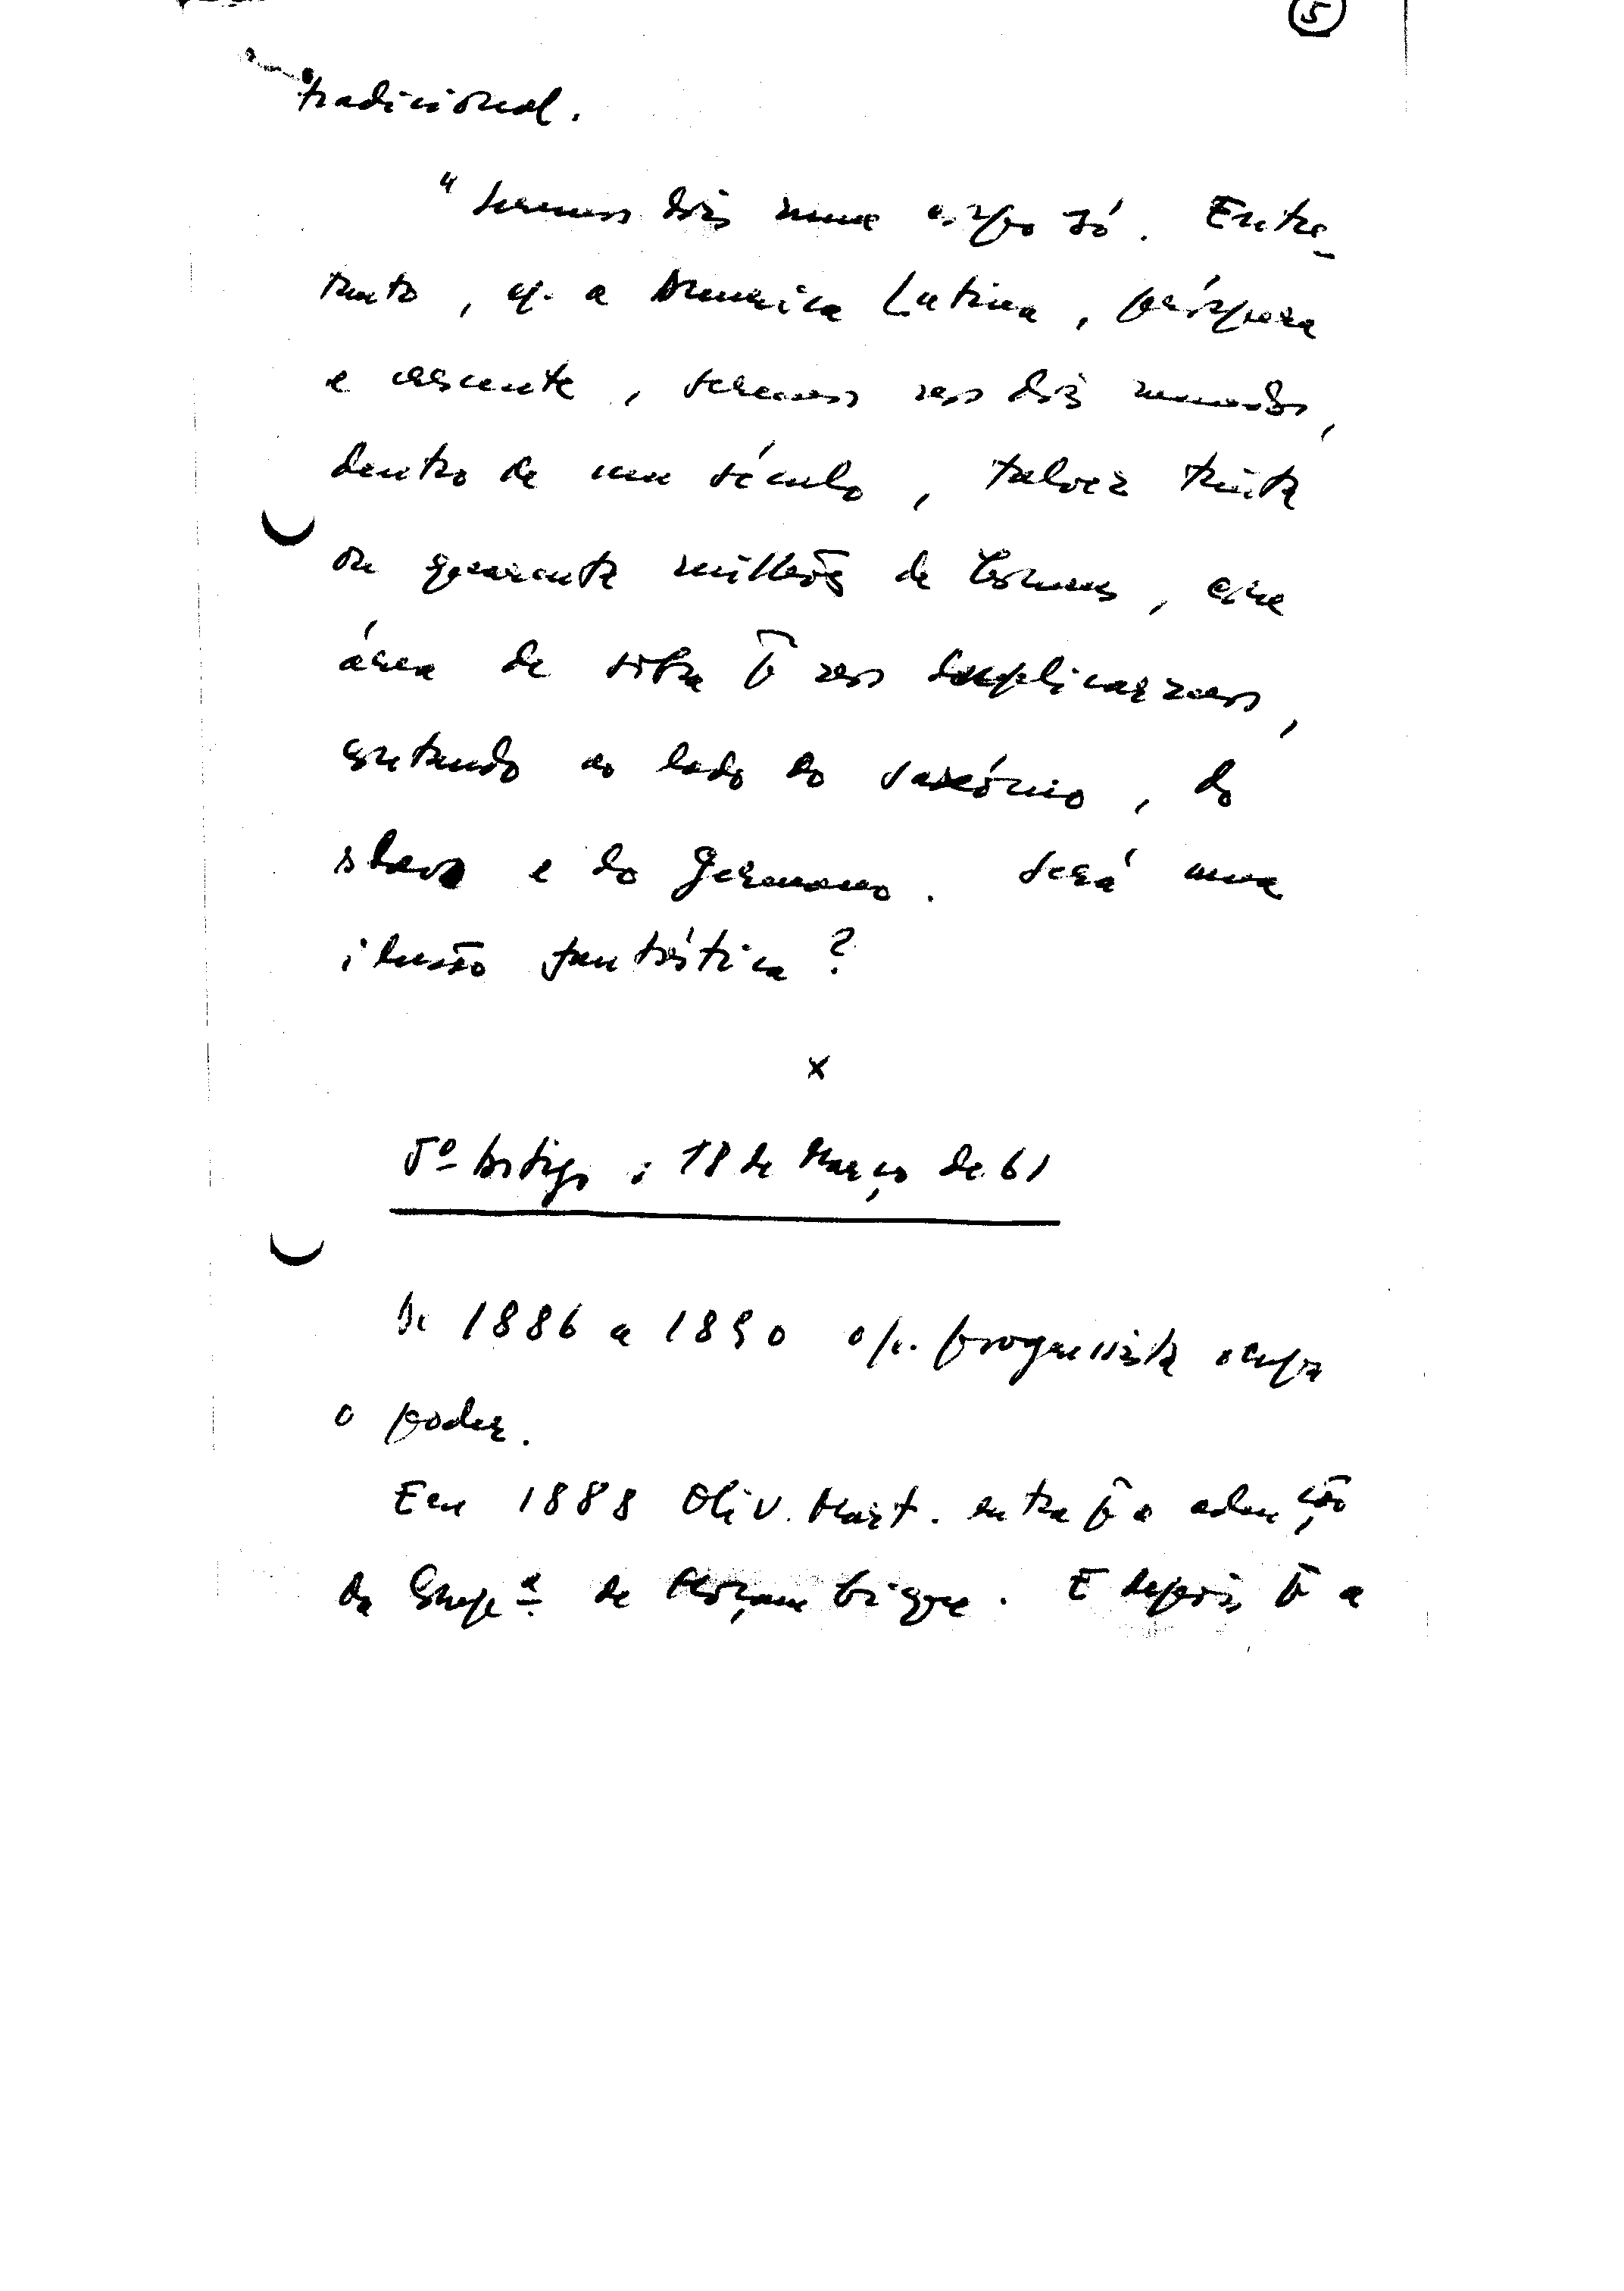 5
tradicional.
" seremos dois num corpo só. Entre-
tanto, q. a America Latina, próspera
e crescente, seremos nos dois mundos,
dentro de um século, talvez trinta
ou quarenta milhões de homens, com
área de sobra p̄ nos duplicarmos,
contando ao lado do saxónio, do
slavo e do germano. Será uma
ilusão fantástica?
x
5º Artigo : 18 de Março de 61
De 1886 a 1890 o p. progressista ocupa
o poder.
Em 1888 Oliv. Mart. entra p̄ a
da Comp.ª de Moçambique. E depois p̄ a